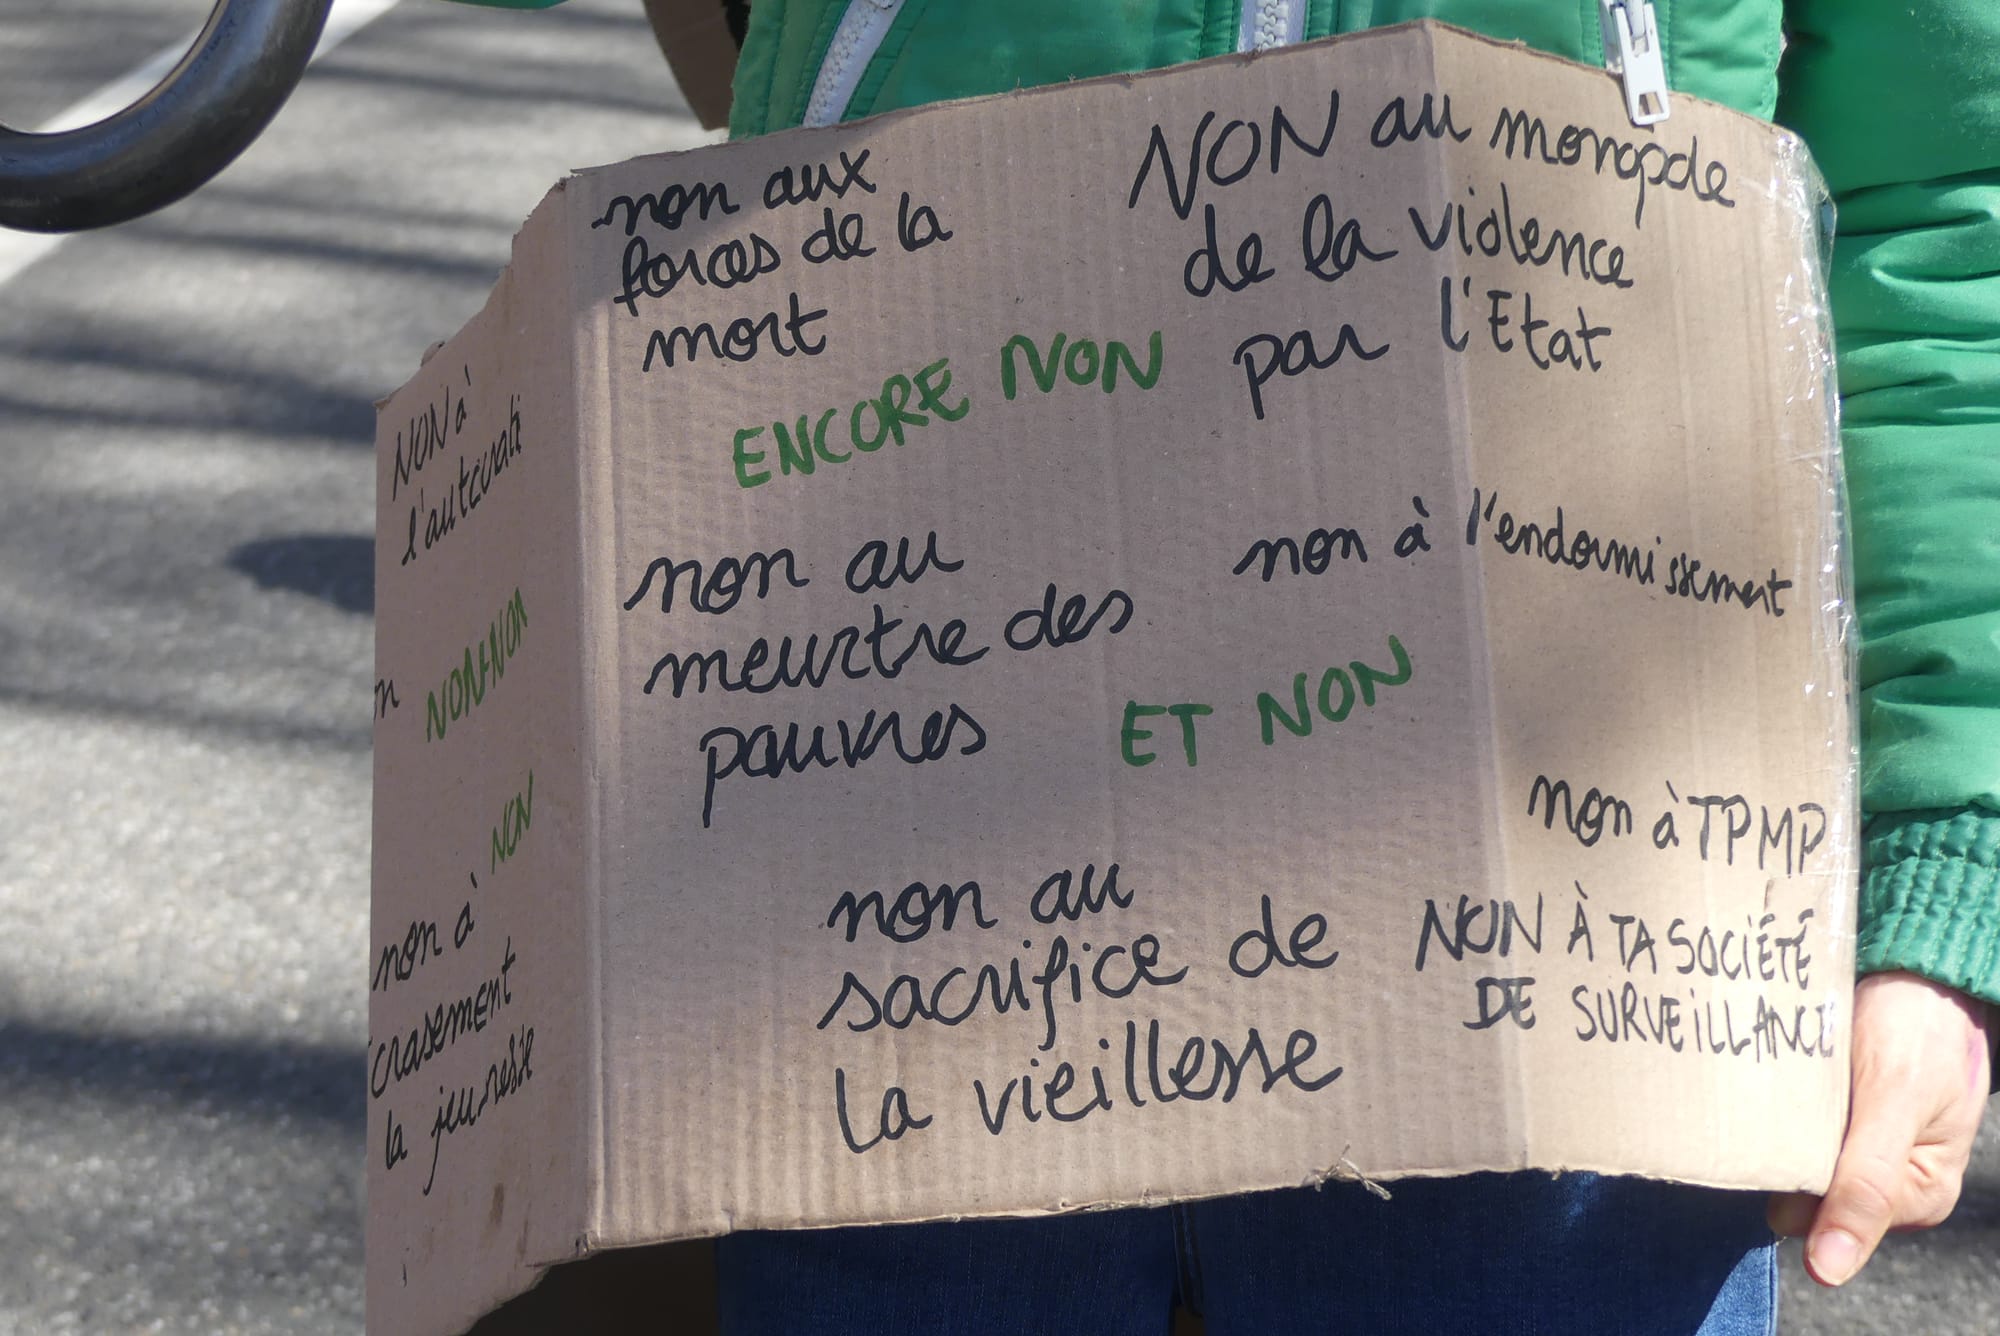 non aux
forces de la
mort
NON au monopole
de la violence
par l'Etat
ENCORE NON
NON à
non au
meurtre des
pauvres
non à l'endormissement
ET NON
NON-NON
NON
non à
crasement
la jeunesse
non au
sacrifice de
la vieillesse
non à TPMP
NON À TA SOCIÉTÉ
DE SURVEILLANCE